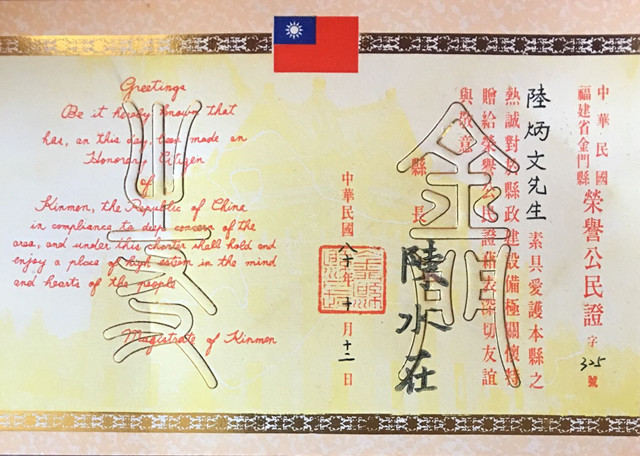 中華民國
福建省金門縣 榮譽公民證 字 325 號
陸炳文先生 素具愛護本縣之
熱誠對於縣政建設備極關懷特
贈給榮譽公民證藉表深切友誼
與敬意
縣長 陸水在
中華民國 八十年 十月十二日
金門
之友
Greetings
Be it hereby known that
has, on this day, been made an
Honorary Citizen
of
Kinmen, the Republic of China
in compliance to deep concern of the
area, and under this charter shall hold and
enjoy a place of high esteem in the mind
and hearts of the people
Magistrate of Kinmen